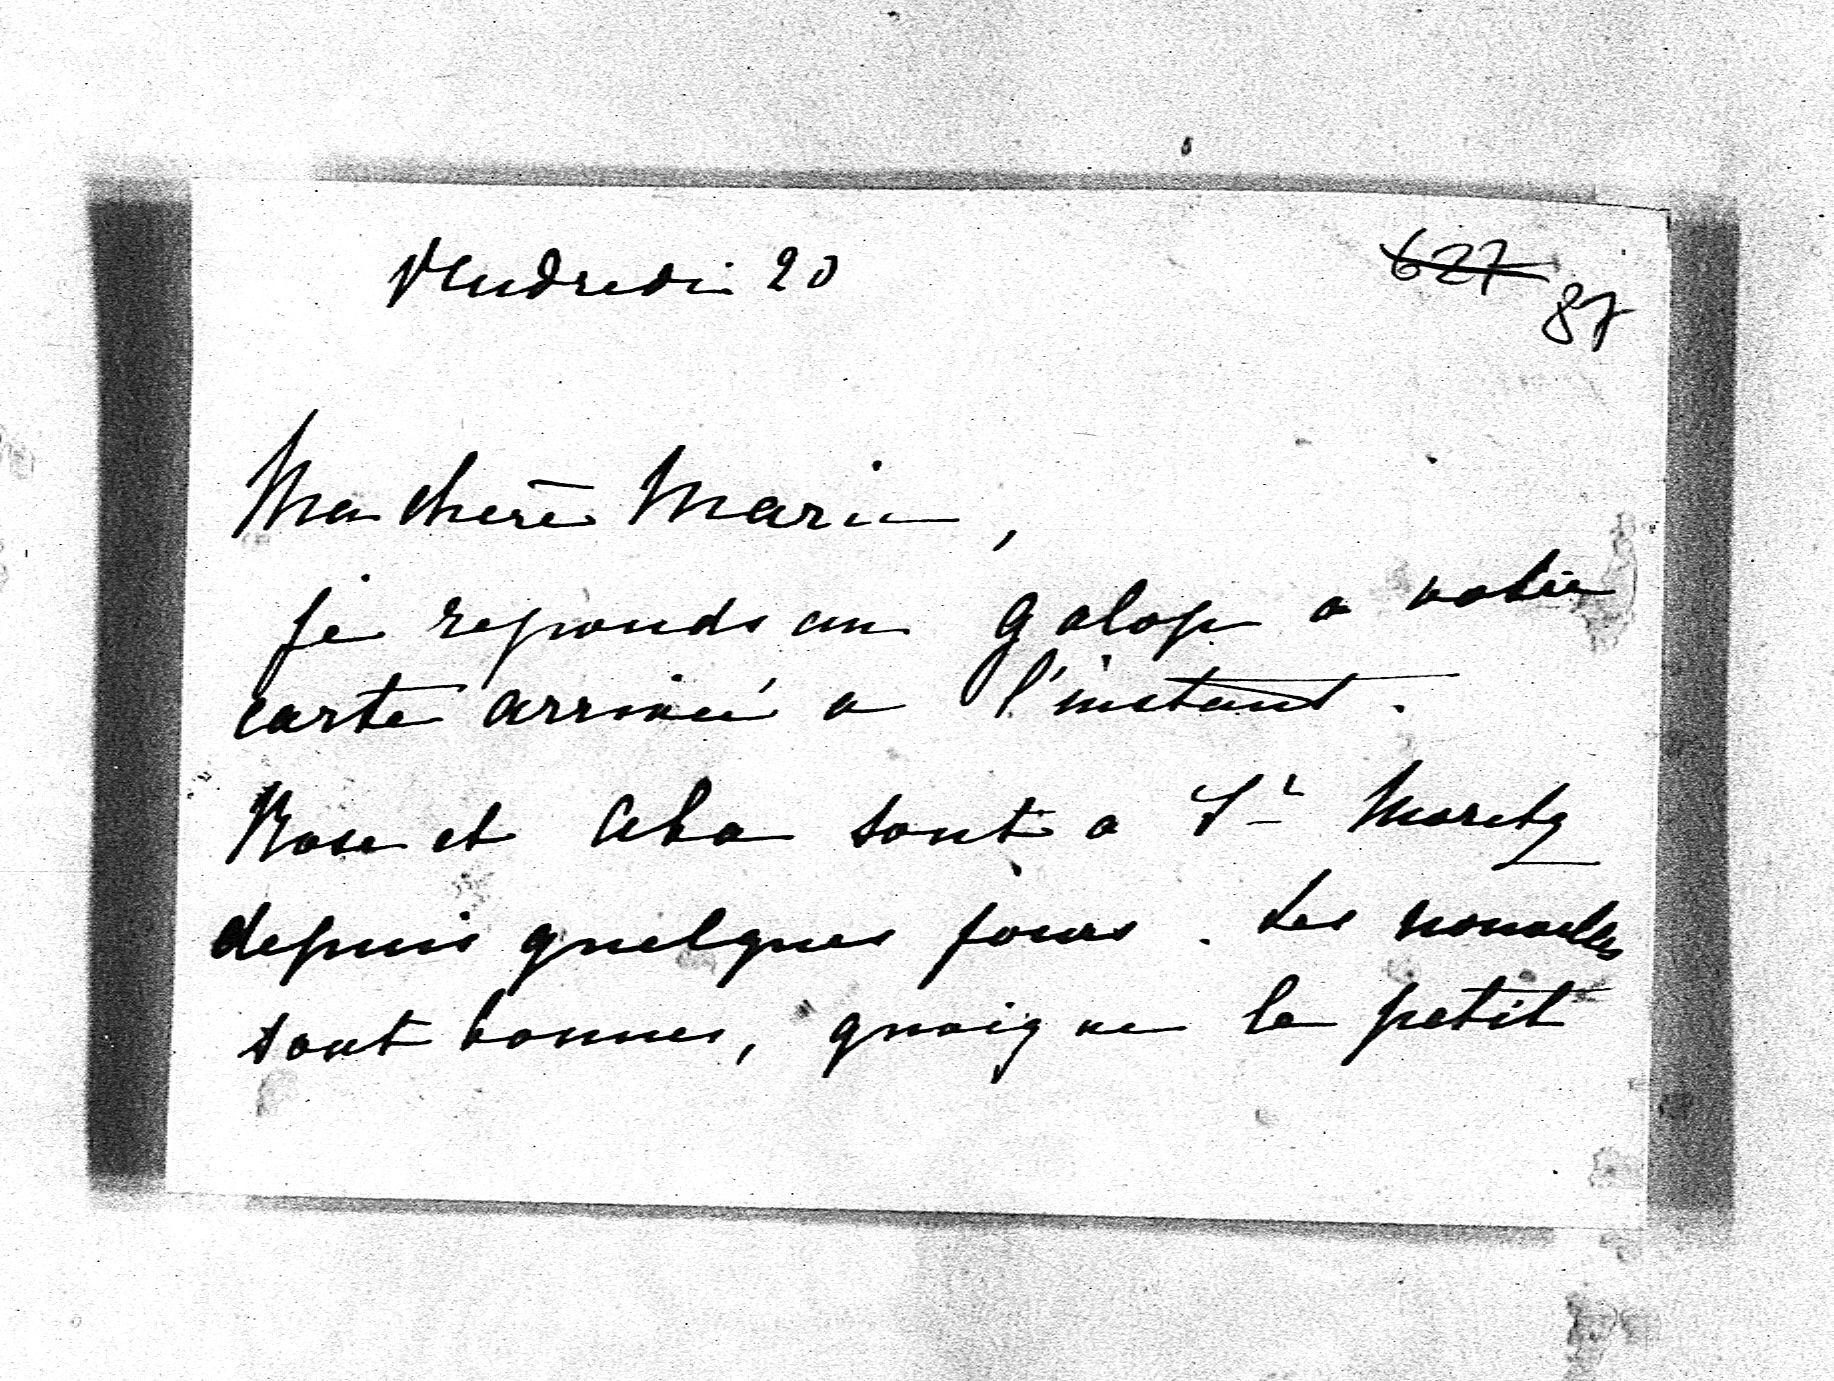 Vendredi 20
627
87
Ma chère Marie,
je reponds au galop a votre
carte arrivée a l'instant.
Rose et Aba sont a St Moretz
depuis quelques jours. Les nouvelles
sont bonnes, quoique le petit